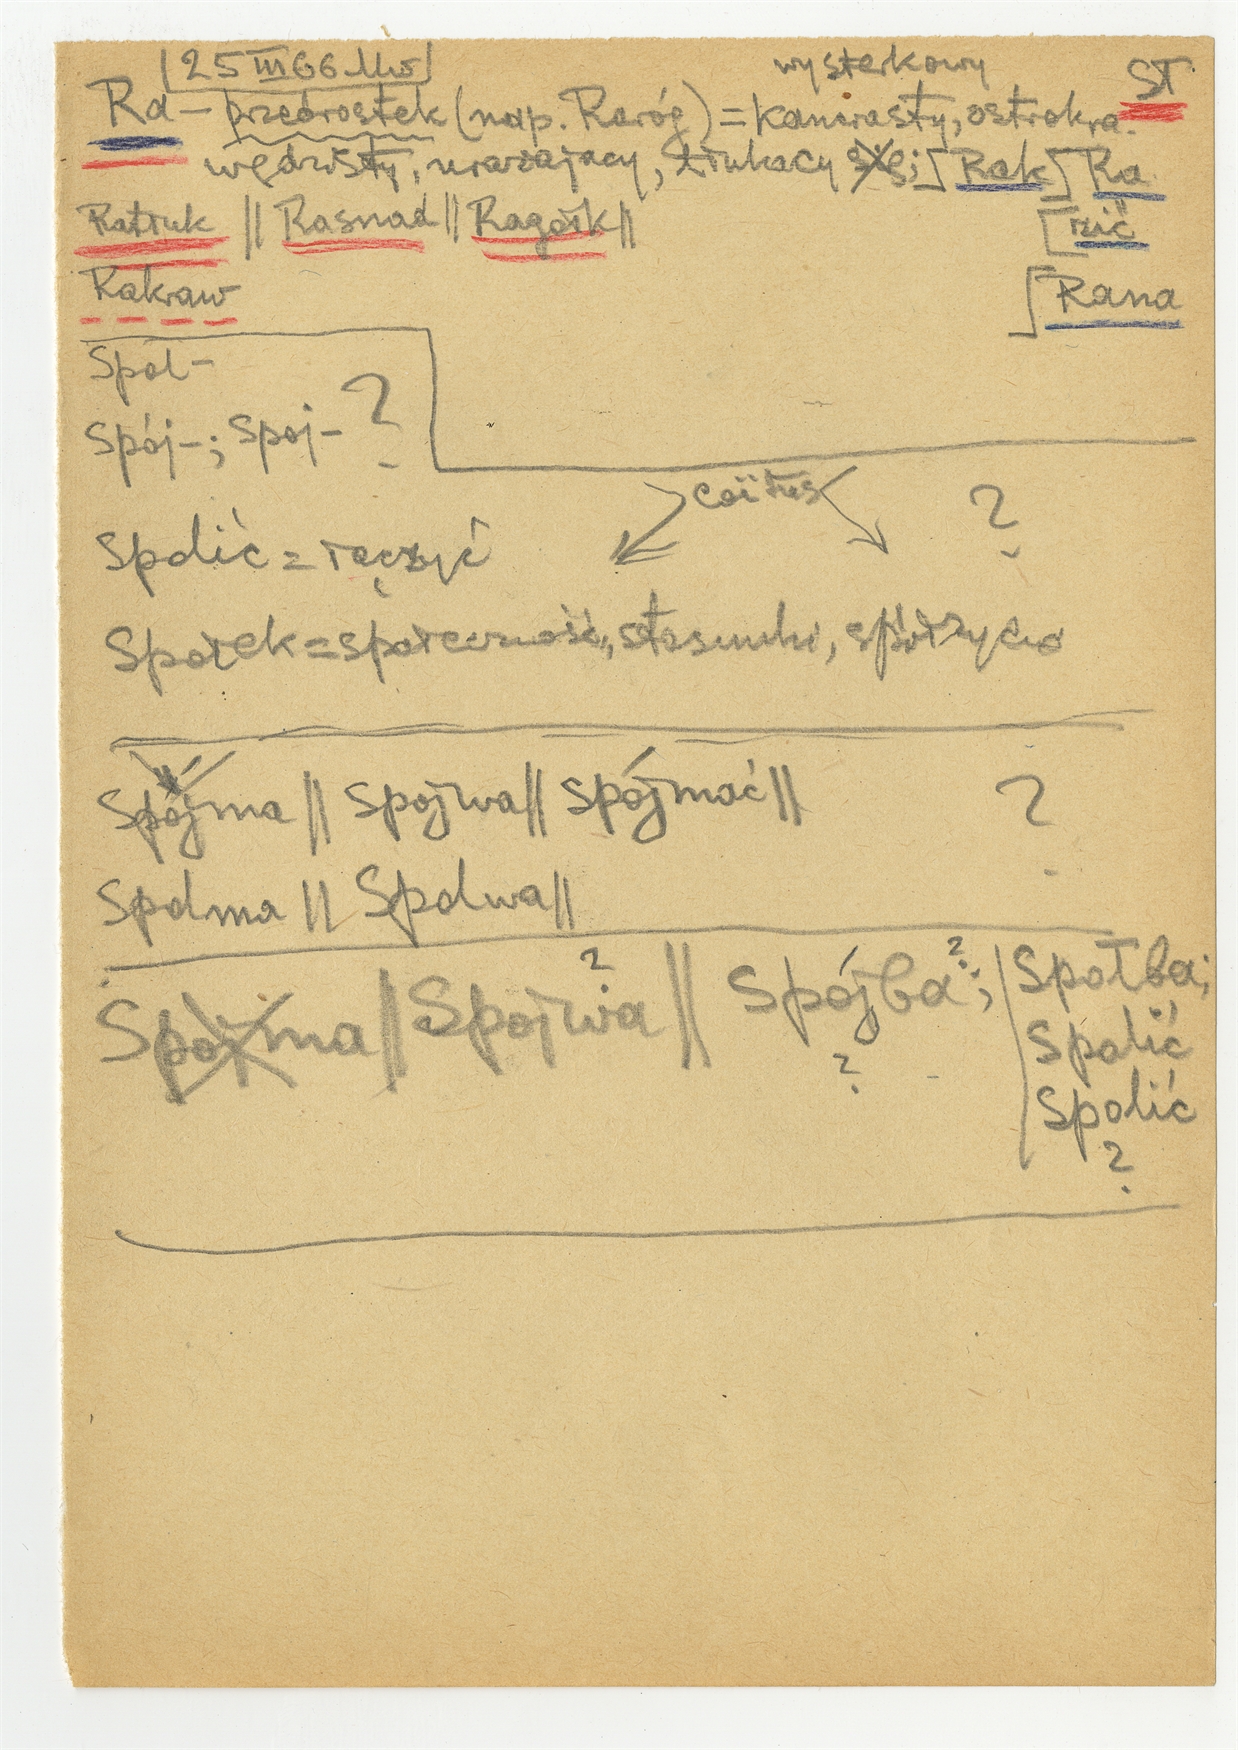 25 III 66 Mw
wysterkowy ST
Ra – przedrostek (np. Raróg) = kanciasty, ostrokra-
wędzisty, urażający, tłukący się; Rak Ra
Ratłuk || Rasnad || Ragołk || zić
Rakraw Rana
Społ-
Spój-; Spoj- ?
coitus ?
Spolić = łączyć
Społek = społeczność, stosunki, spółżycie
Spójma || Spojwa || Spójmać || ?
Spolma || Spolwa ||
Spojma || Spojwa ? || Spójba ?; Społba;
? Spolić
Spolić
?